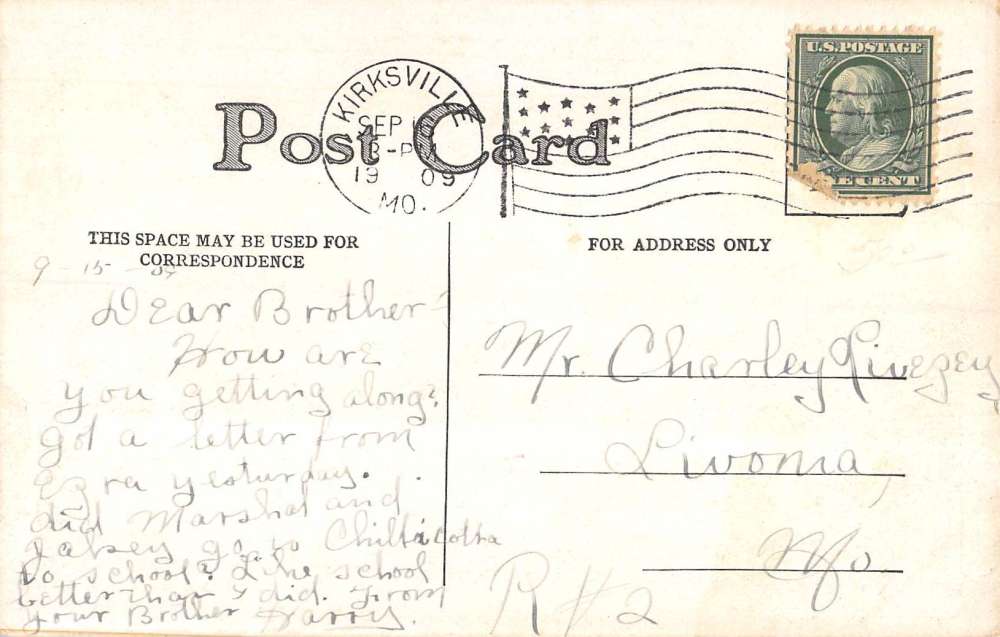 Post Card
KIRKSVILLE
SEP
19 09
MO.
U.S. POSTAGE
ONE CENT
THIS SPACE MAY BE USED FOR
CORRESPONDENCE
FOR ADDRESS ONLY
9-15-09
Dear Brother:
How are
you getting along?
got a letter from
Ezra yesturday.
did Marshal and
go to Chillicotha
to school? Like school
better than I did. From
your Brother Harry.
Mr. Charley Livezey
Livonia,
Mo.
R#2